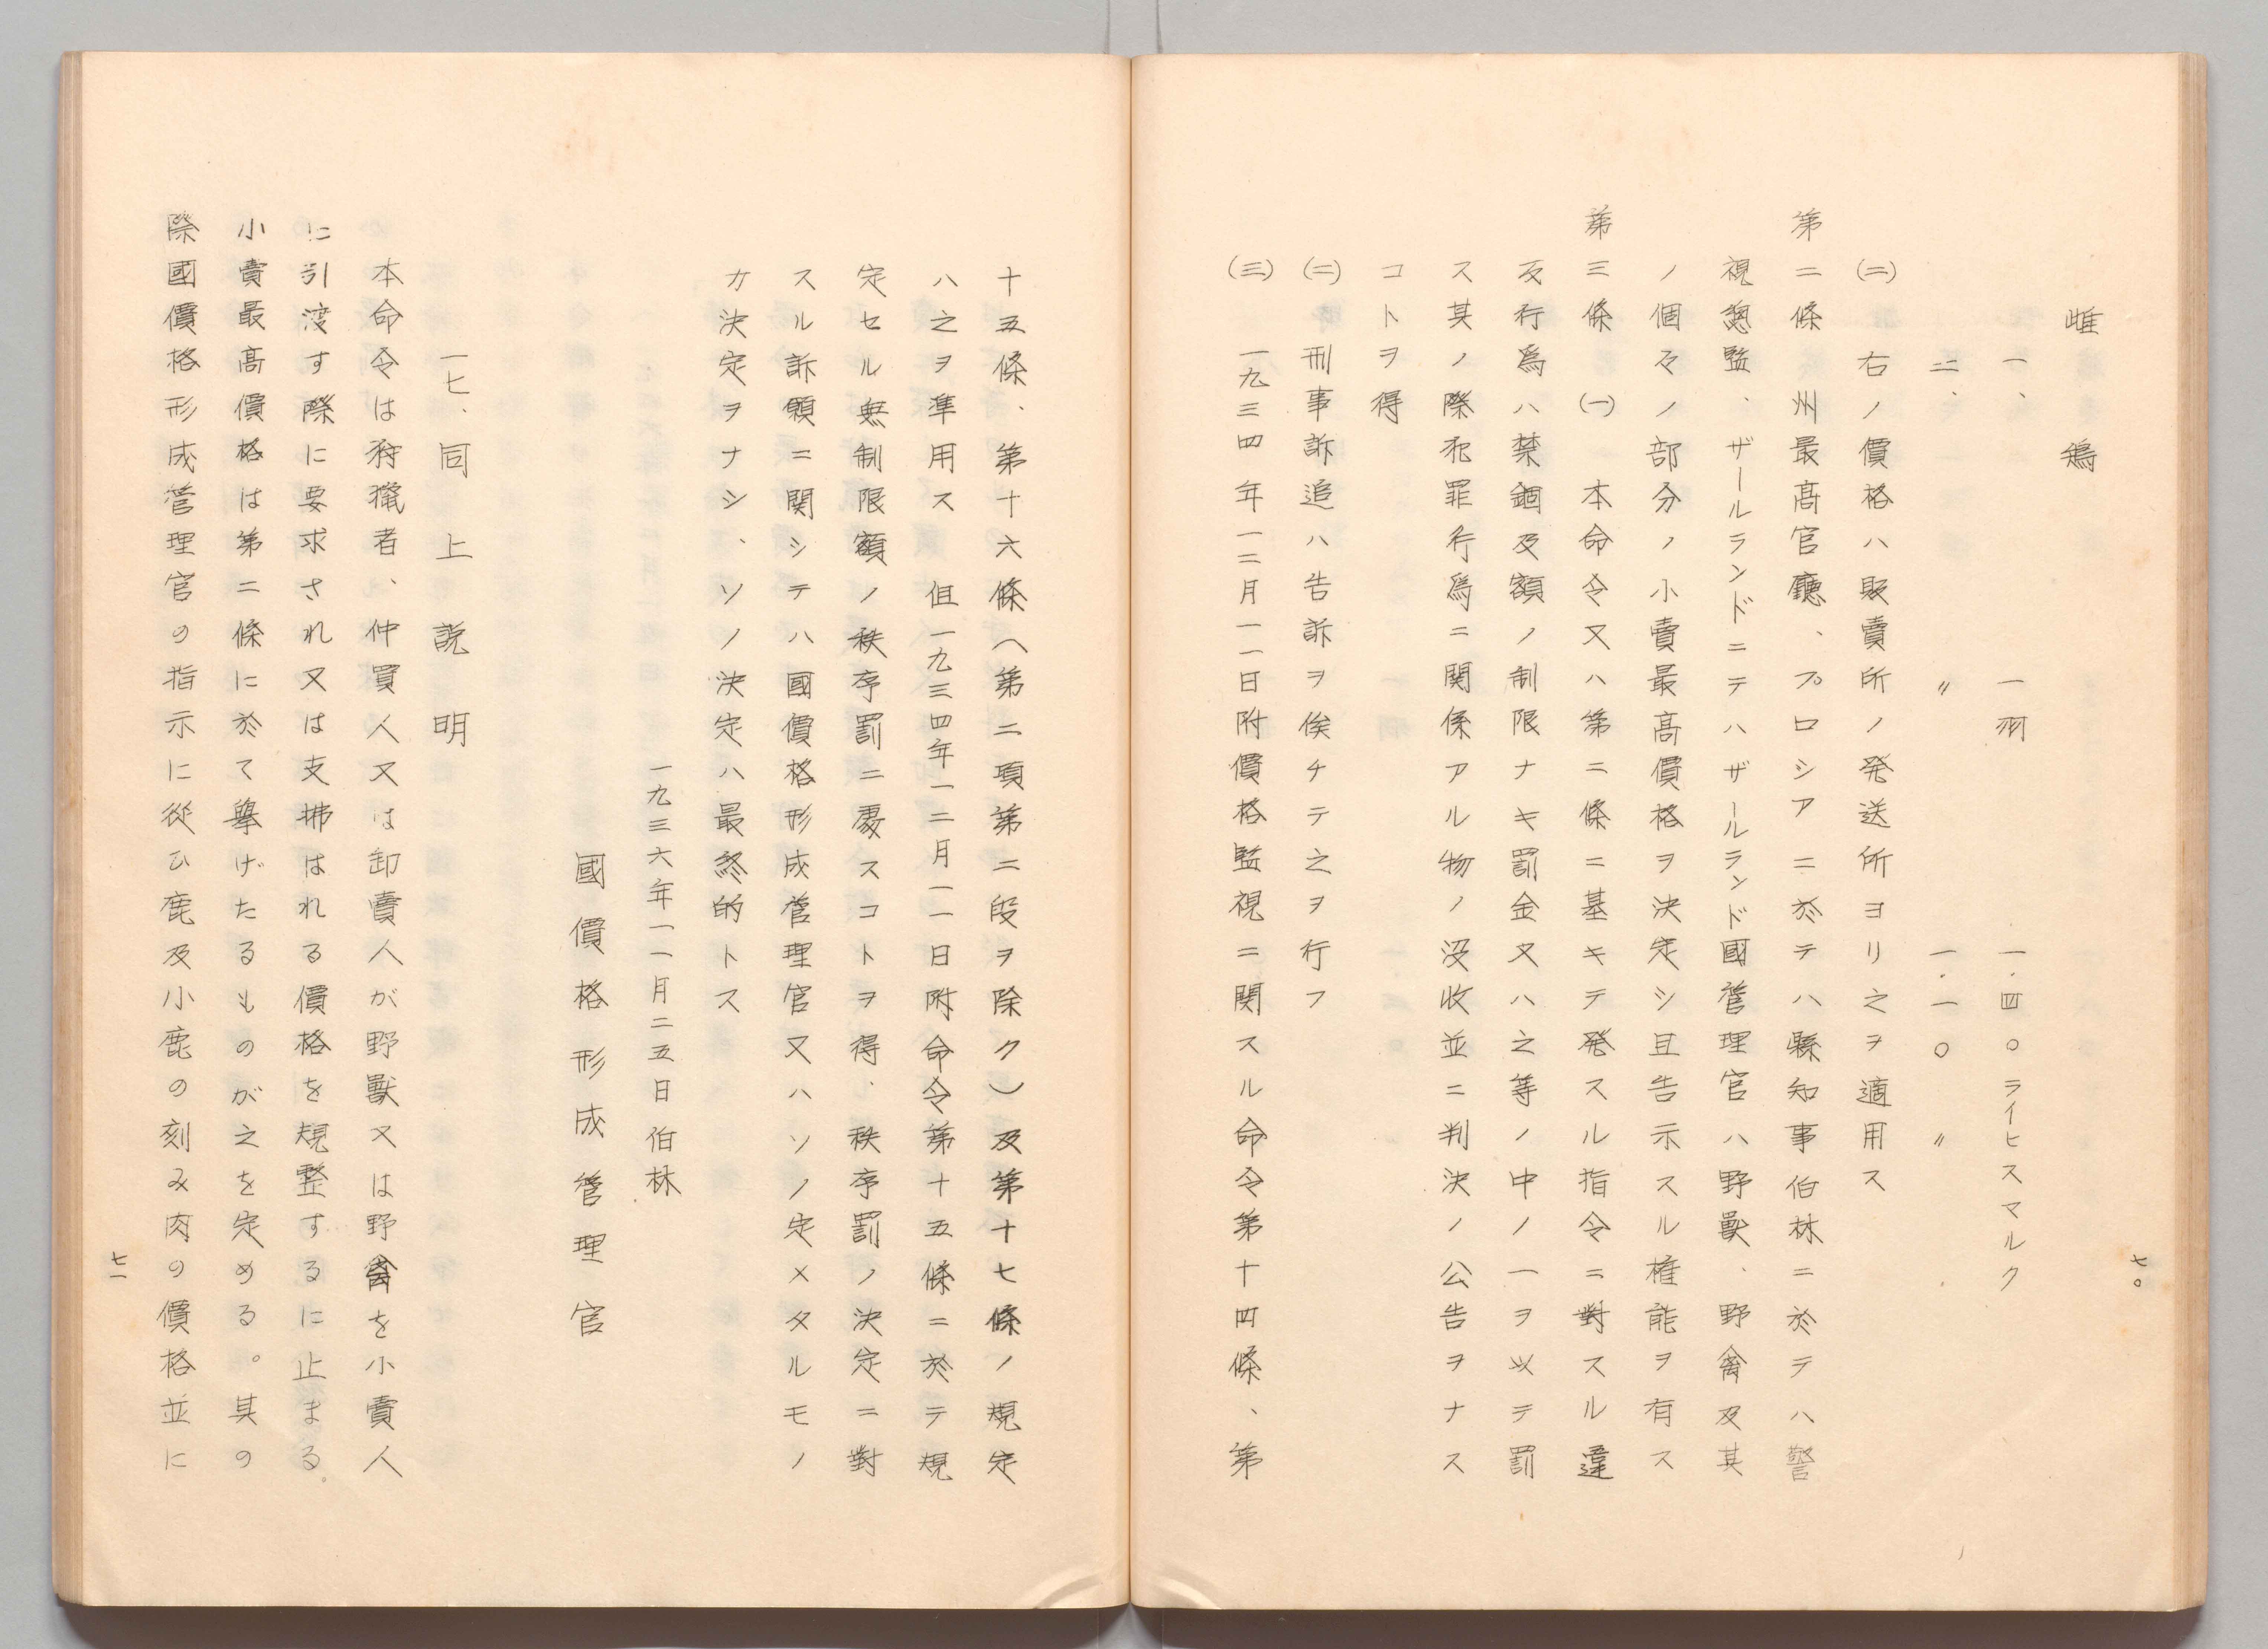 七〇
雌　鶏
一、　一羽　一.四〇ライヒスマルク
二、　〃　一.一〇　〃
(二)　右ノ價格ハ販賣所ノ発送所ヨリ之ヲ適用ス
第二條　州最髙官廳、プロシアニ於テハ縣知事伯林ニ於テハ警
視惣監、ザールランドニテハザールランド國管理官ハ野獸、野禽及其
ノ個々ノ部分ノ小賣最髙價格ヲ決定シ且告示スル権能ヲ有ス
第三條　(一)　本命令又ハ第二條ニ基キテ発スル指令ニ對スル違
反行爲ハ禁錮及額ノ制限ナキ罰金又ハ之等ノ中ノ一ヲ以テ罰
ス其ノ際犯罪行爲ニ関係アル物ノ没收並ニ判決ノ公告ヲナス
コトヲ得
(二)　刑事訴追ハ告訴ヲ俟チテ之ヲ行フ
(三)　一九三四年一二月一一日附價格監視ニ関スル命令第十四條、第
十五條、第十六條(第二項第二段ヲ除ク)及第十七條ノ規定
ハ之ヲ準用ス　但一九三四年一二月一一日附命令第十五條ニ於テ規
定セル無制限額ノ秩序罰ニ處スコトヲ得、秩序罰ノ決定ニ對
スル訴願ニ関シテハ國價格形成管理官又ハソノ定メタルモノ
カ決定ヲナシ、ソノ決定ハ最終的トス
一九三六年一一月二五日伯林
國價格形成管理官
一七、同上説明
本命令は狩獵者、仲買人又は卸賣人が野獸又は野禽を小賣人
に引渡す際に要求され又は支拂はれる價格を規整するに止まる。
小賣最髙價格は第二條に於て擧げたるものが之を定める。其の
際國價格形成管理官の指示に從ひ鹿及小鹿の刻み肉の價格並に
七一